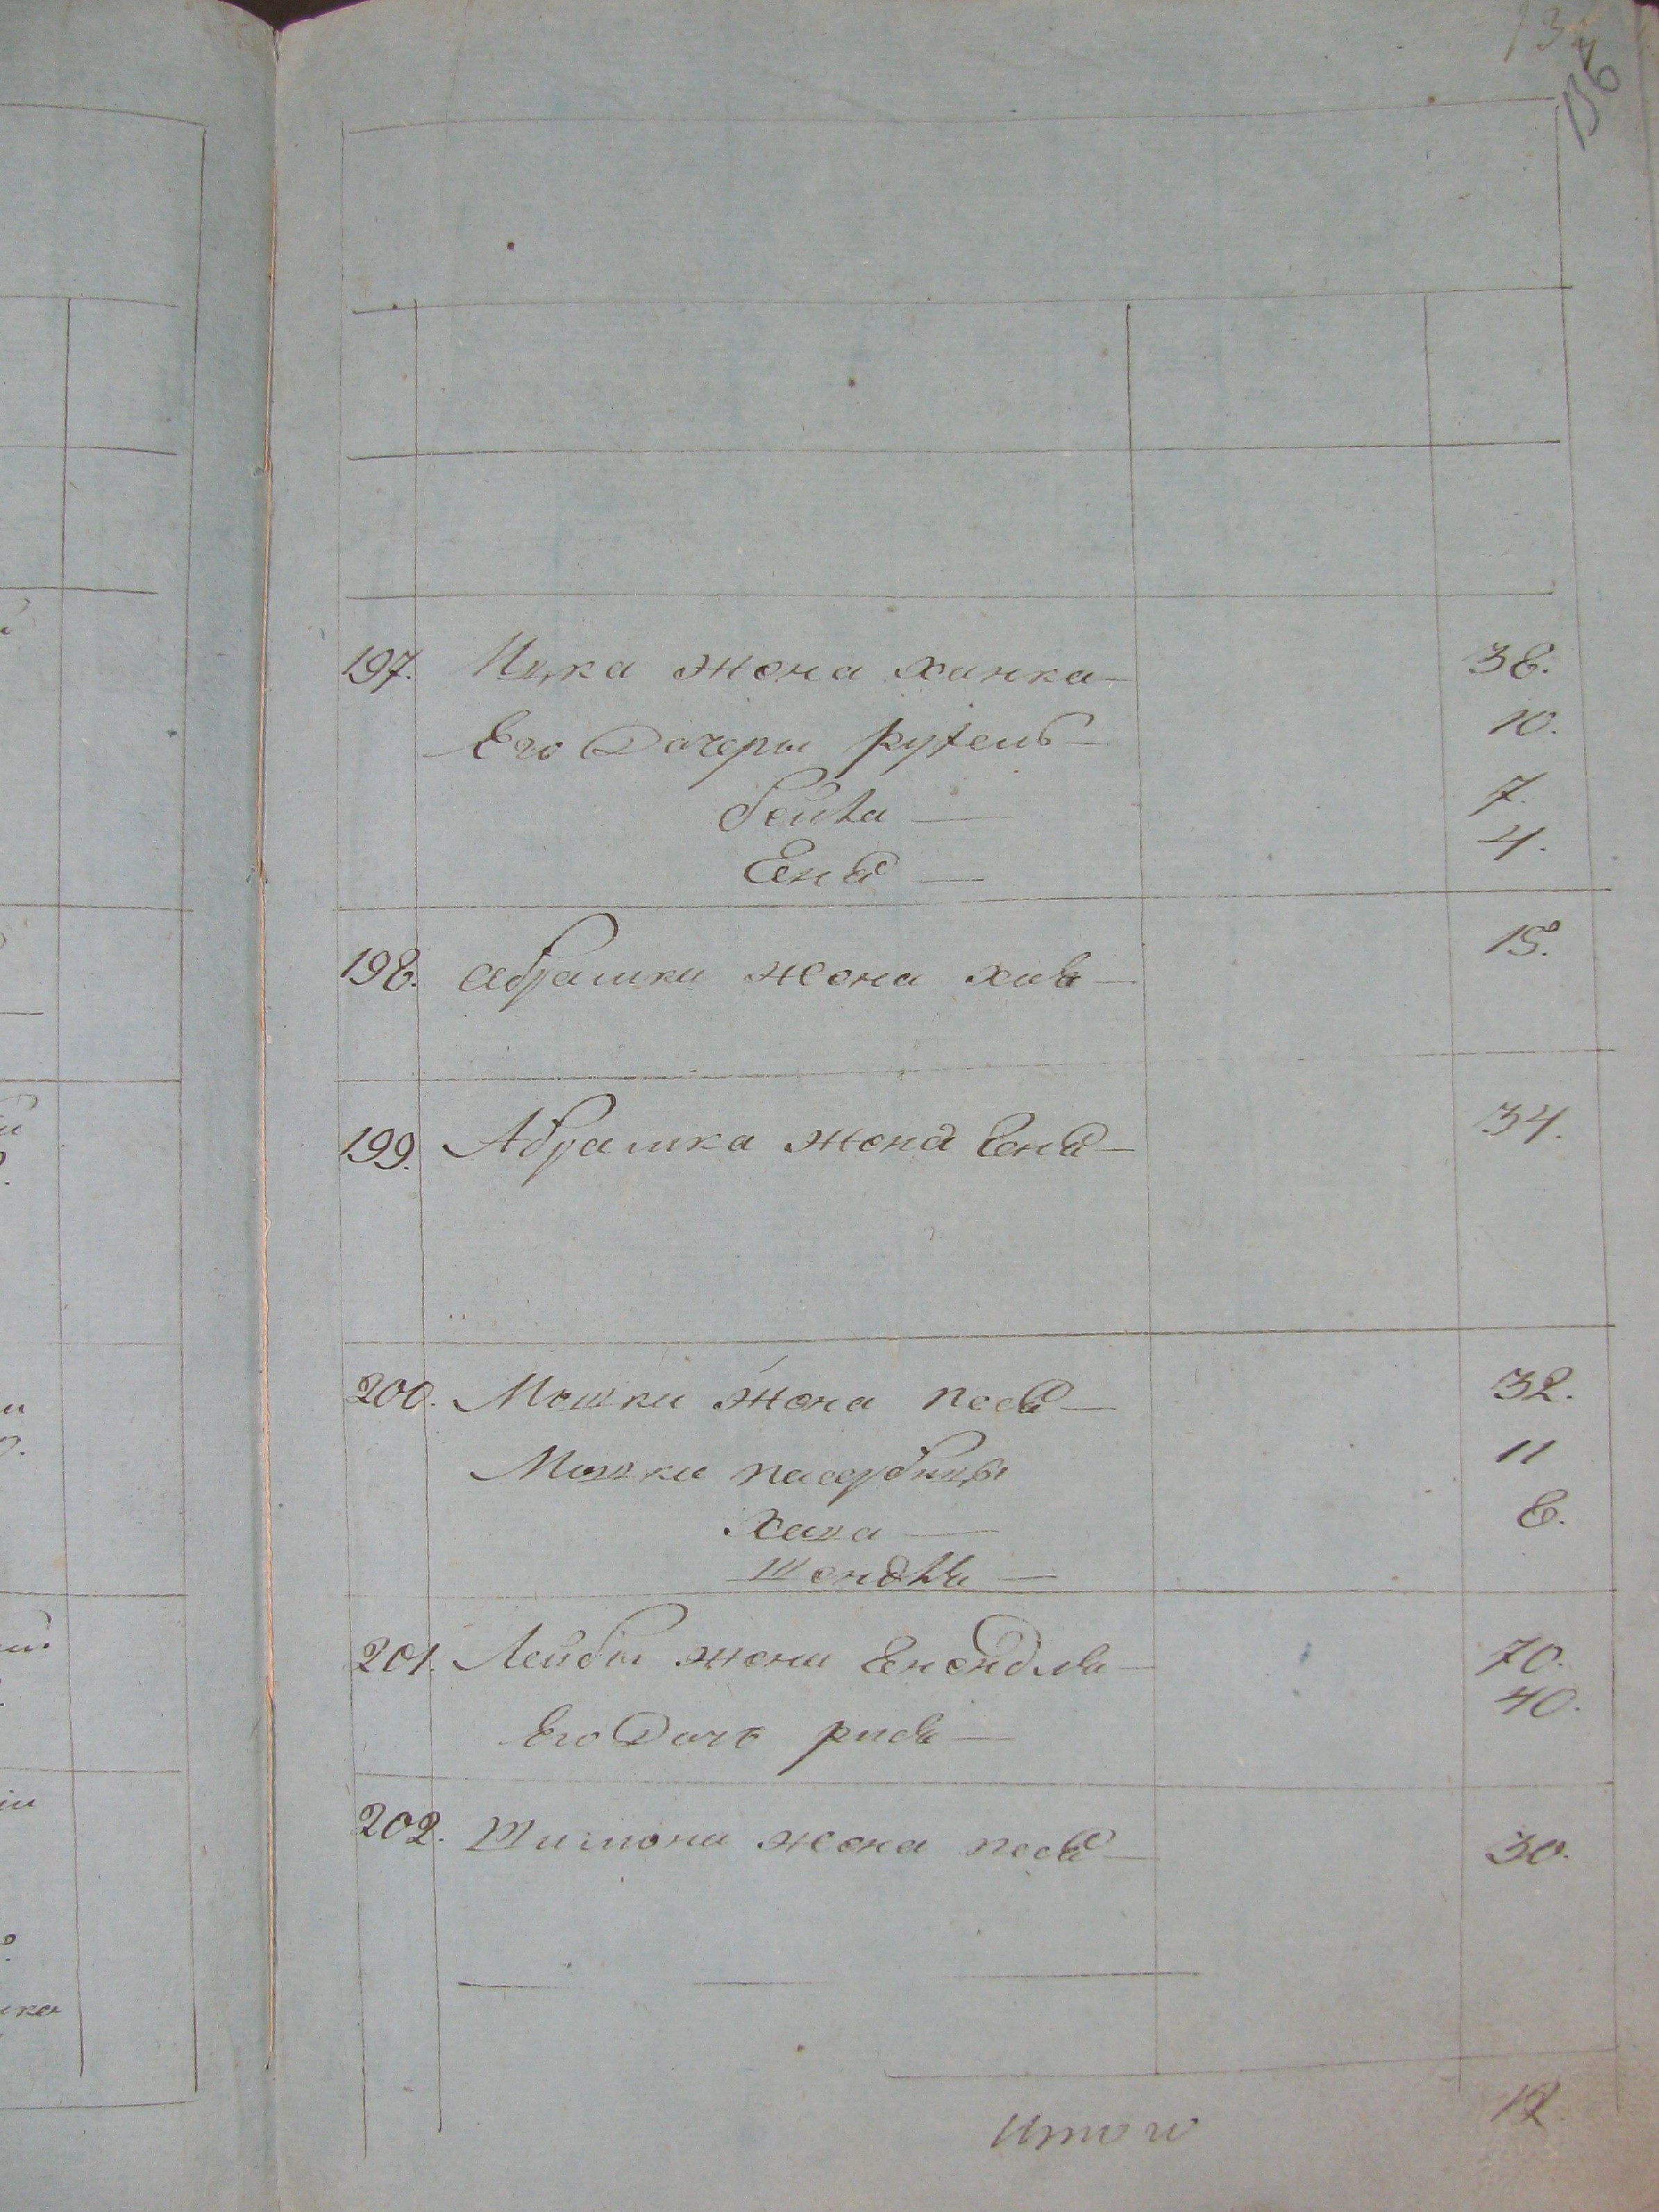 136
197. Ицка жена ханка 38.
Его Дочеры рухель 10.
бейла 7.
Ена 4.
198. абрашки жена хая 18.
199. Абрашка жена Ена 34.
200. Мошки жена песя 32.
Мошки пасербицы 11
Хана 8.
шендля
201. Лейбы жена Енендля 70.
Его Дочь рися 40.
202. Шимона жена песя 30.
Итого 12.